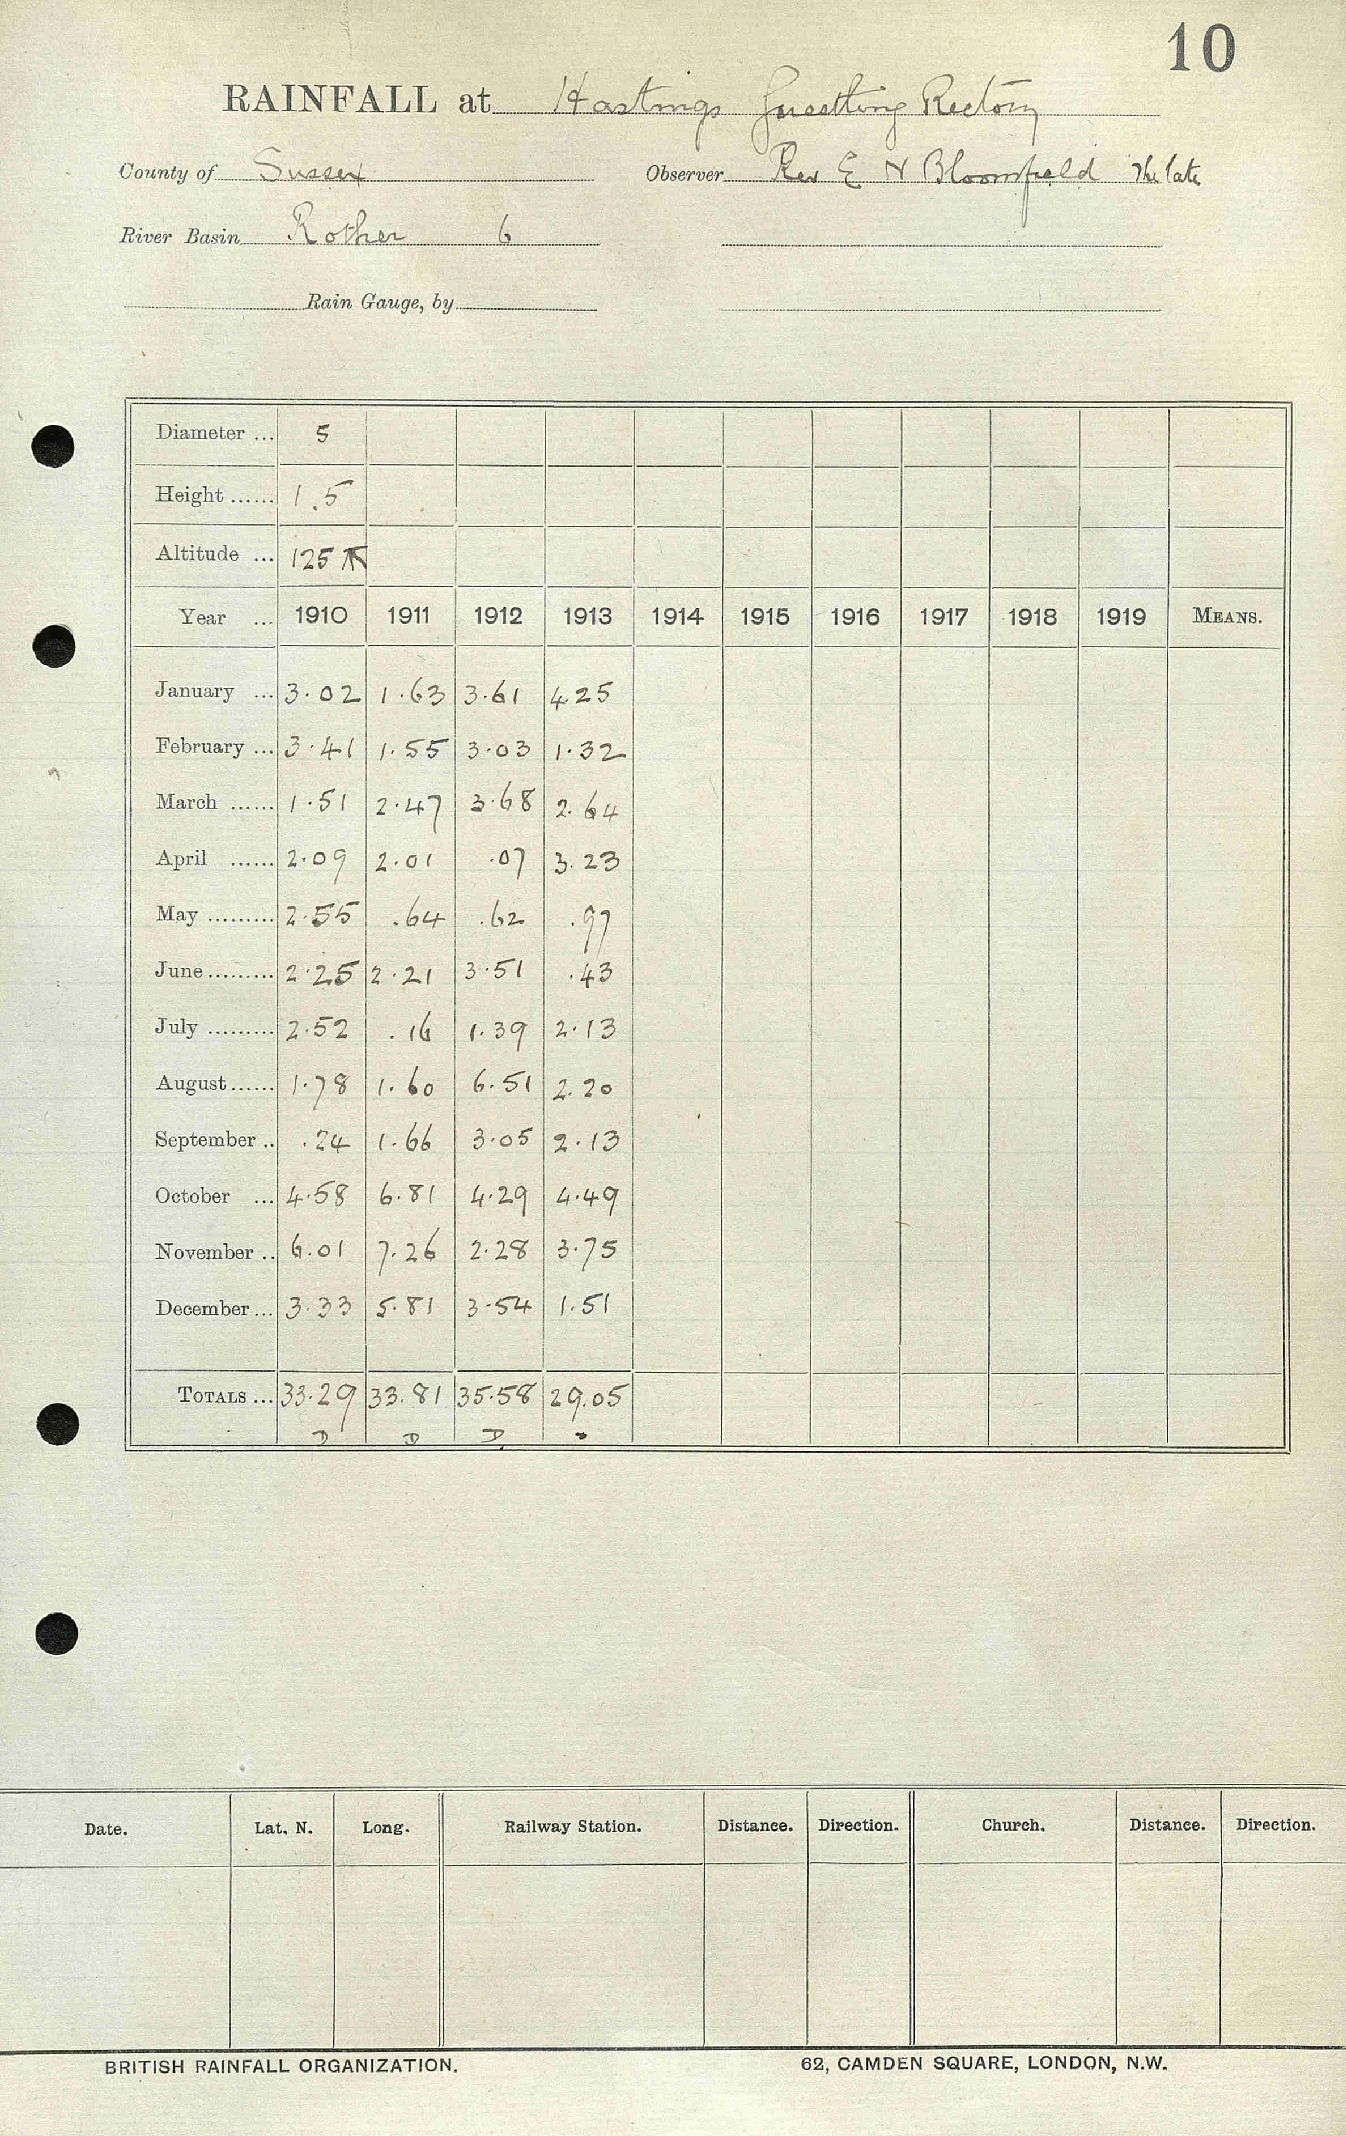 10
RAINFALL at Hastings Guestling Rectory
County of Sussex Observer Rev E N Bloomfield The late
River Basin Rother 6
Rain Gauge, by
Diameter ... 5
Height ...... 1.5
Altitude ... 125
Year ... 1910 1911 1912 1913 1914 1915 1916 1917 1918 1919 MEANS.
January ... 3.02 1.63 3.61 4.25
February ... 3.41 1.55 3.03 1.32
March ...... 1.51 2.47 3.68 2.64
April ...... 2.09 2.01 .07 3.23
May ......... 2.55 .64 .62 .97
June ......... 2.25 2.21 3.51 .43
July ......... 2.52 .16 1.39 2.13
August ...... 1.78 1.60 6.51 2.20
September .. .24 1.66 3.05 2.13
October ... 4.58 6.81 4.29 4.49
November .. 6.01 7.26 2.28 3.75
December ... 3.33 5.81 3.54 1.51
TOTALS ... 33.29 33.81 35.58 29.05
D D D
Date. Lat. N. Long. Railway Station. Distance. Direction. Church. Distance. Direction.
BRITISH RAINFALL ORGANIZATION. 62, CAMDEN SQUARE, LONDON, N.W.